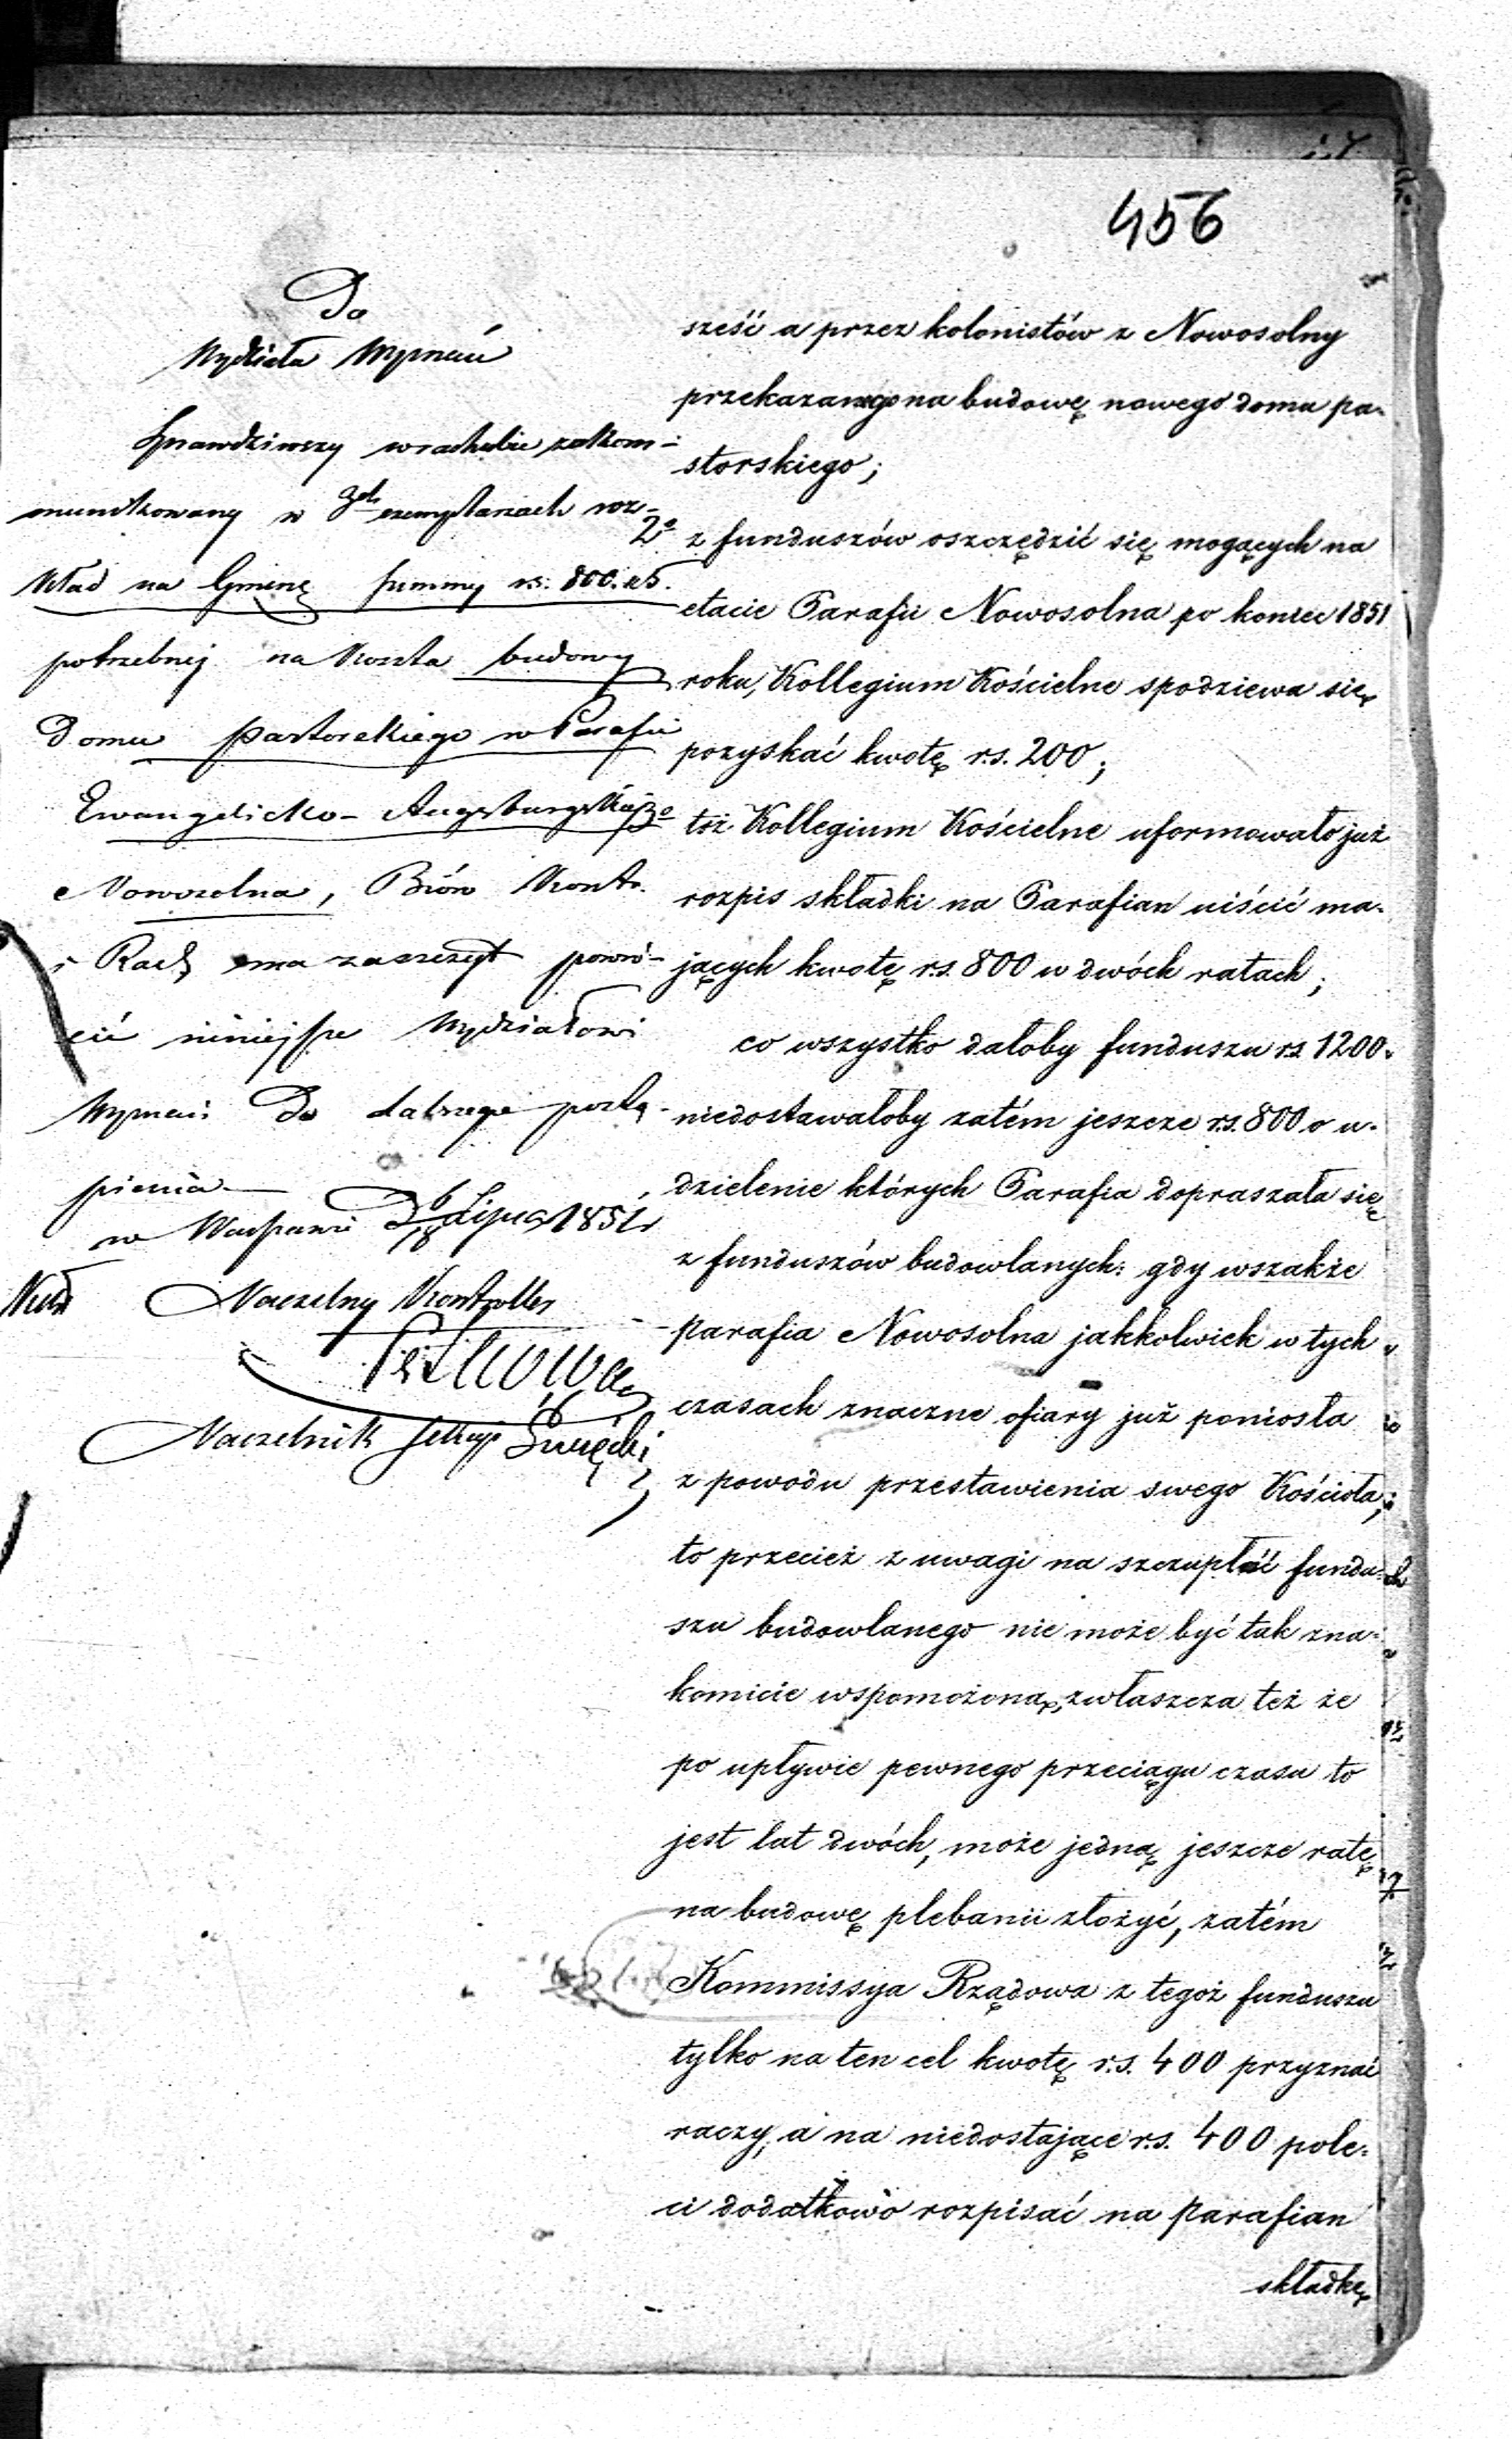 456
Do
Wydziału Wyznań
Sprawdziwszy w rachubie zakom-
munikowany w 3ch exemplarzach roz-
kład na Gminę summy rs: 800. k 5.
potrzebnej na koszta budowy
Domu pastorskiego w Parafii
Ewangelicko-Augsburgskiej
Nowosolna, Bióro Kontr.
i Rach ma zaszczyt powró-
cić niniejsze Wydziałowi
Wyznań do dalszego postą-
pienia
w Warszawie D 6/18 Lipca 1851 r
Naczelny Kontroller
Naczelnik Sekcyi
sześć a przez kolonistów z Nowosolny
przekazanego na budowę nowego domu pa-
storskiego;
2o z funduszów oszczędzić się mogących na
etacie Parafii Nowosolna po koniec 1851
roku, Kollegium Kościelne spodziewa się
pozyskać kwotę r.s. 200;
toż Kollegium Kościelne uformowało już
rozpis składki na Parafian uiścić ma-
jących kwotę r.s. 800 w dwóch ratach;
co wszystko dałoby funduszu rs. 1200.
niedostawałoby zatém jeszcze r.s. 800 o u-
dzielenie których Parafia dopraszała się
z funduszów budowlanych: gdy wszakże
parafia Nowosolna jakkolwiek w tych
czasach znaczne ofiary już poniosła
z powodu przestawienia swego Kościoła,
to przecież z uwagi na szczupłość fundu-
szu budowlanego nie może być tak zna-
komicie wspomożoną, zwłaszcza też że
po upływie pewnego przeciągu czasu to
jest lat dwóch, może jedną jeszcze ratę
na budowę plebanii złożyć, zatém
Kommissya Rządowa z tegoż funduszu
tylko na ten cel kwotę r.s. 400 przyznać
raczy, a na niedostające r.s. 400 pole-
ci dodatkowo rozpisać na parafian
składkę